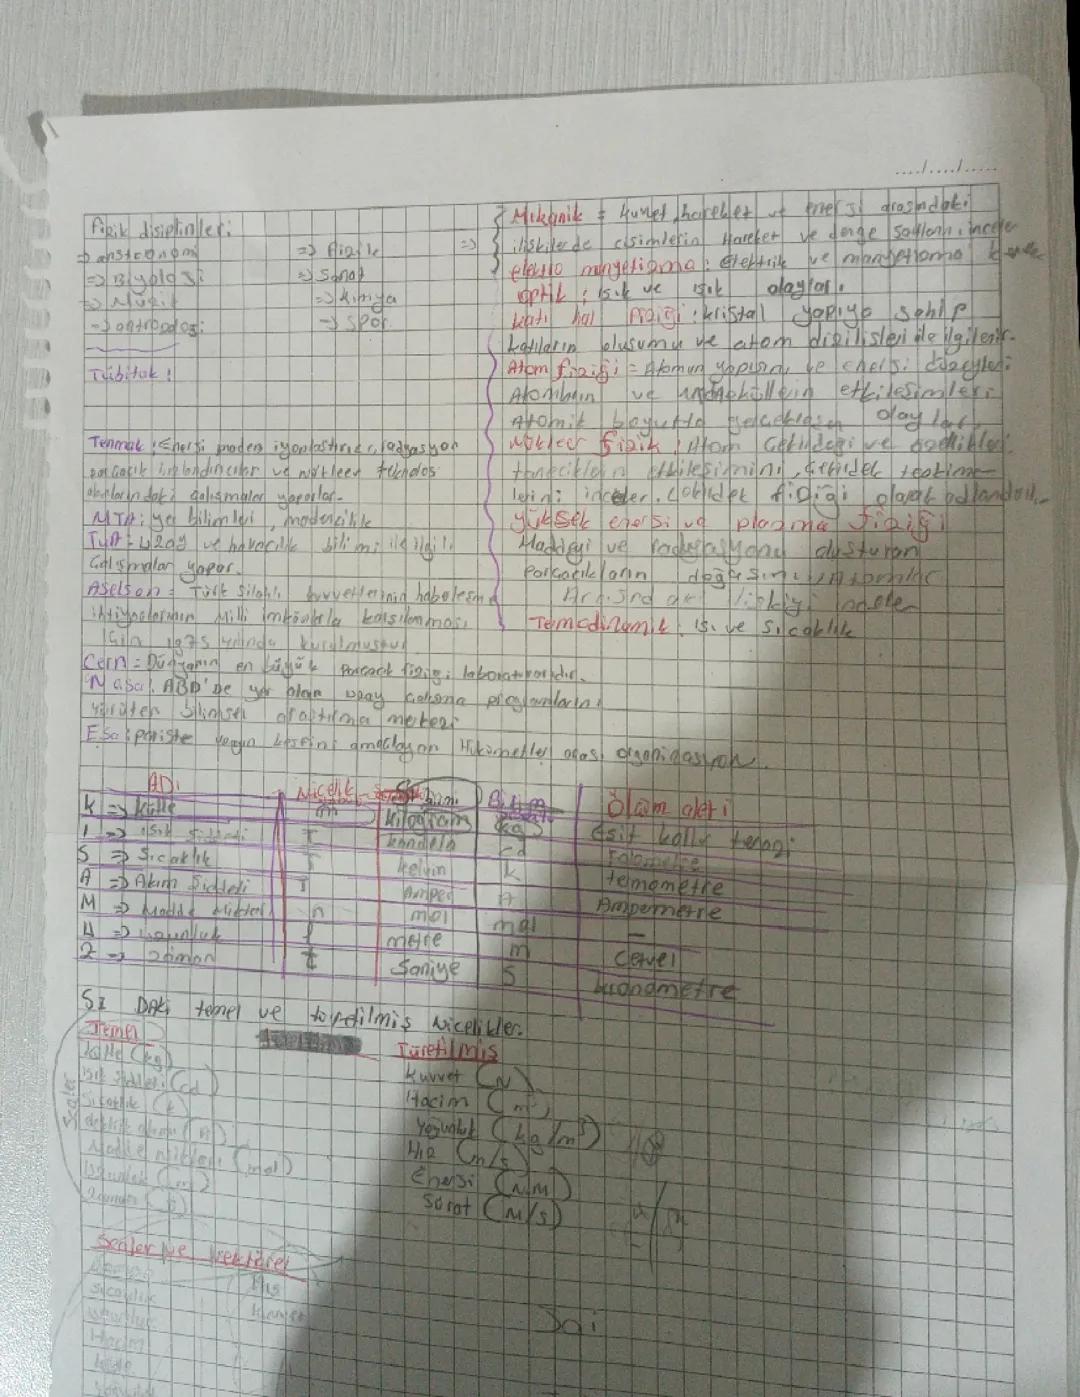 Fizik disiplinleri:
=> anstronomi => Fizik
=> Biyoloji => Sanat
=> Müzik => Kimya
=> antropoloji => Spor
Tübitak:
Tenmak: Enerji maden iyonlaştırıcı, radyasyon
parçacık hızlandırıcılar ve nükleer
alanlarındaki çalışmalar yaparlar.
MTA: yer bilimleri, madencilik
TUA: Uzay ve havacılık bilimi ile ilgili
Çalışmalar yapar.
Aselsan = Türk Silahlı kuvvetlerinin haberleşme
ihtiyaçlarının Milli imkanlarla karşılanması
için 1975 yılında kurulmuştur
Cern = Dünyanın en büyük Parçacık fiziği laboratuvarıdır.
Nasa: ABD'de yer alan uzay çalışma programlarını
yürüten bilimsel araştırma merkezi
Esa: pariste uzayın keşfini amaçlayan Hükümetler arası organizasyon.
=> Mekanik = kuvvet, hareket ve enerji arasındaki
ilişkilerde cisimlerin Hareket ve denge şartlarını inceler
elektro manyetizma: Elektrik ve manyetizma
optik: ışık ve ışık olayları
katı hal fiziği: kristal yapıya sahip
katıların oluşumu ve atom dizilişleri ile ilgilenir.
Atom fiziği = Atomun yapısını ve enerji düzeyleri
Atomların ve moleküllerin etkileşimleri
Atomik boyutta gerçekleşen olaylar
Nükleer fizik: Atom Çekirdeği ve
taneciklerin etkileşimini, çekirdek
inceler. Çekirdek fiziği olarak adlandırılır.
yüksek enerji ve plazma fiziği
Maddeyi ve radyasyonu oluşturan
Parçacıkların
ilişkiyi inceler
Termodinamik: ısı ve sıcaklık
ADı Nicelik Birim Ölçüm aleti
K => Kütle m kilogram kg Eşit kollu terazi
I => Işık Şiddeti I kandela cd Fotometre
S => Sıcaklık T kelvin K termometre
A => Akım Şiddeti I Amper A Ampermetre
M => Madde Miktarı n mol mol -
U => Uzunluk l metre m Cetvel
Z => zaman t Saniye S kronometre
SI DAki temel ve türetilmiş Nicelikler.
Temel Türetilmiş
Kütle (kg) Kuvvet (N)
Işık Şiddeti (cd) Hacim (m³)
Sıcaklık (k) Yoğunluk (kg/m³)
Hız (m/s)
Madde miktarı (mol) Enerji (N.M)
Uzunluk (m) Sürat (M/s)
Zaman (s)
Skaler
Scaler ve vektörel
Hız
Sıcaklık Kuvvet
Hacim